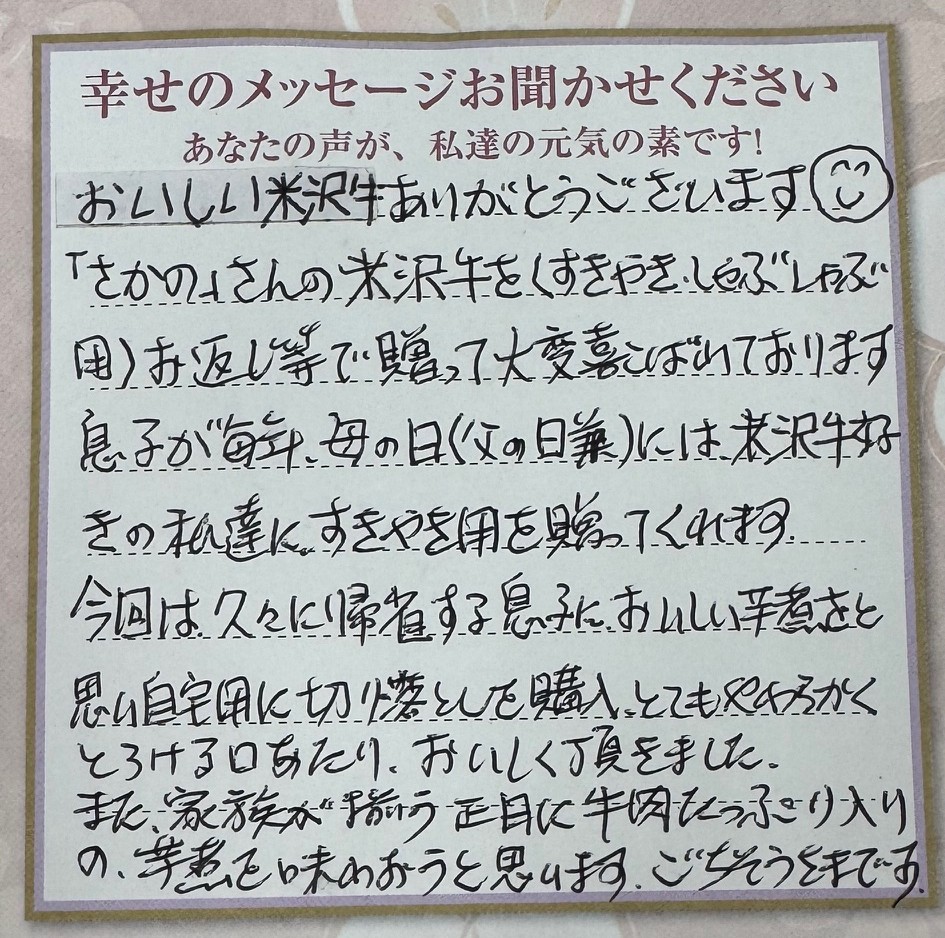 幸せのメッセージお聞かせください
あなたの声が、私達の元気の素です!
おいしい米沢牛ありがとうございます
「さかの」さんの米沢牛を(すきやき・しゃぶしゃぶ
用)お返し等で贈って大変喜こばれております
息子が毎年、母の日(父の日兼)には、米沢牛好
きの私達に、すきやき用を贈ってくれます。
今回は、久々に帰省する息子に、おいしい芋煮をと
思い自宅用に切り落としを購入、とてもやわらかく
とろける口あたり、おいしく頂きました。
また、家族が揃う正月に牛肉たっぷり入り
の、芋煮を味わおうと思います。ごちそうさまです。